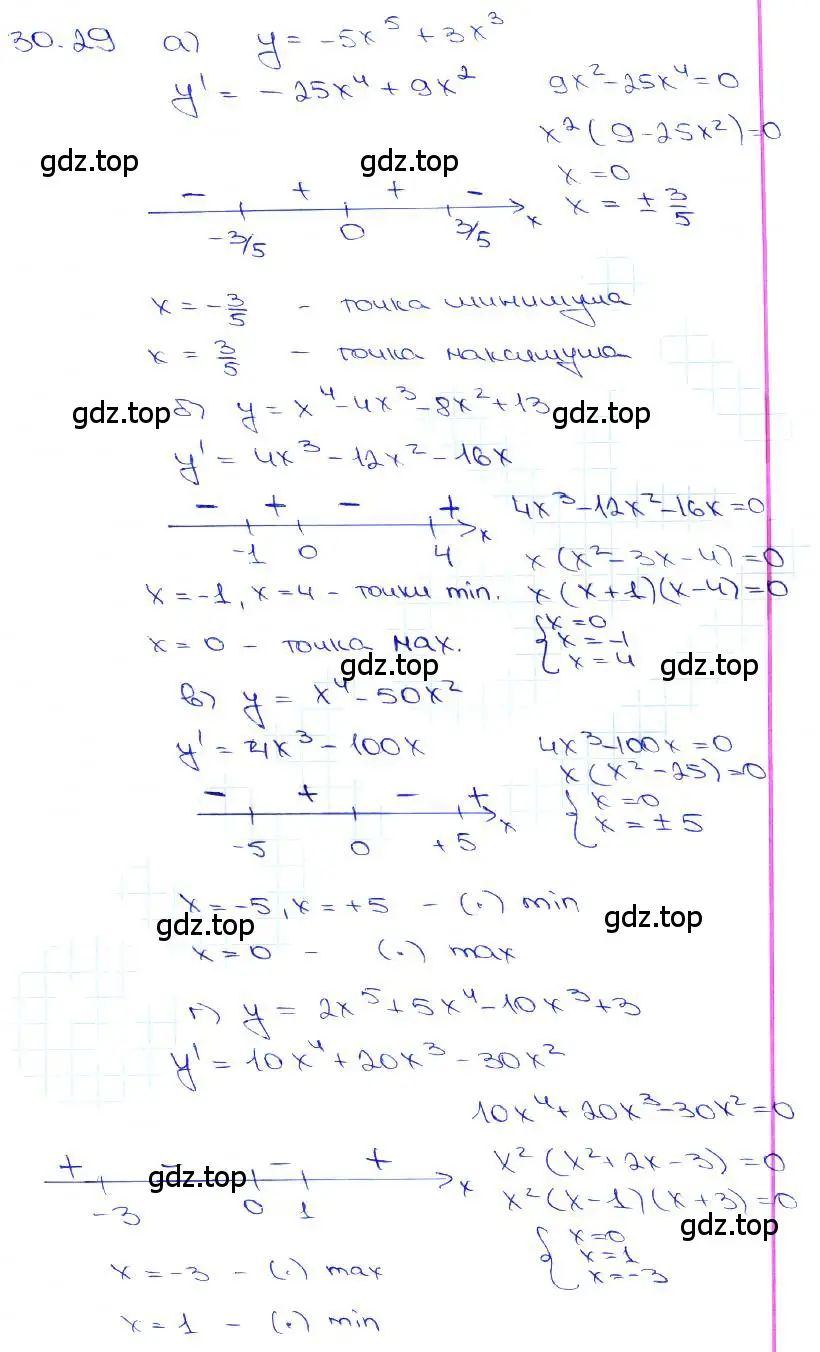 30.29 а) y = -5x⁵ + 3x³
y' = -25x⁴ + 9x²
9x² - 25x⁴ = 0
x²(9 - 25x²) = 0
x = 0
x = ± 3/5
gdz.top gdz.top
- + + -
-3/5 0 3/5 x
x = -3/5 - точка минимума
x = 3/5 - точка максимума
gdz.top б) y = x⁴ - 4x³ - 8x² + 13 gdz.top
y' = 4x³ - 12x² - 16x
- + - +
-1 0 4 x
4x³ - 12x² - 16x = 0
x(x² - 3x - 4) = 0
x = -1, x = 4 - точки min. x(x + 1)(x - 4) = 0
x = 0 - точка мах.
{ x = 0
x = -1
x = 4
gdz.top gdz.top
в) y = x⁴ - 50x²
y' = 4x³ - 100x
4x³ - 100x = 0
x(x² - 25) = 0
{ x = 0
x = ± 5
- + - +
-5 0 +5 x
x = -5, x = +5 - (.) min
gdz.top gdz.top
x = 0 - (.) max
г) y = 2x⁵ + 5x⁴ - 10x³ + 3
y' = 10x⁴ + 20x³ - 30x²
10x⁴ + 20x³ - 30x² = 0
x²(x² + 2x - 3) = 0
x²(x - 1)(x + 3) = 0
{ x = 0
x = 1
x = -3
+ - - +
-3 0 1 x
gdz.top gdz.top
x = -3 - (.) max
x = 1 - (.) min